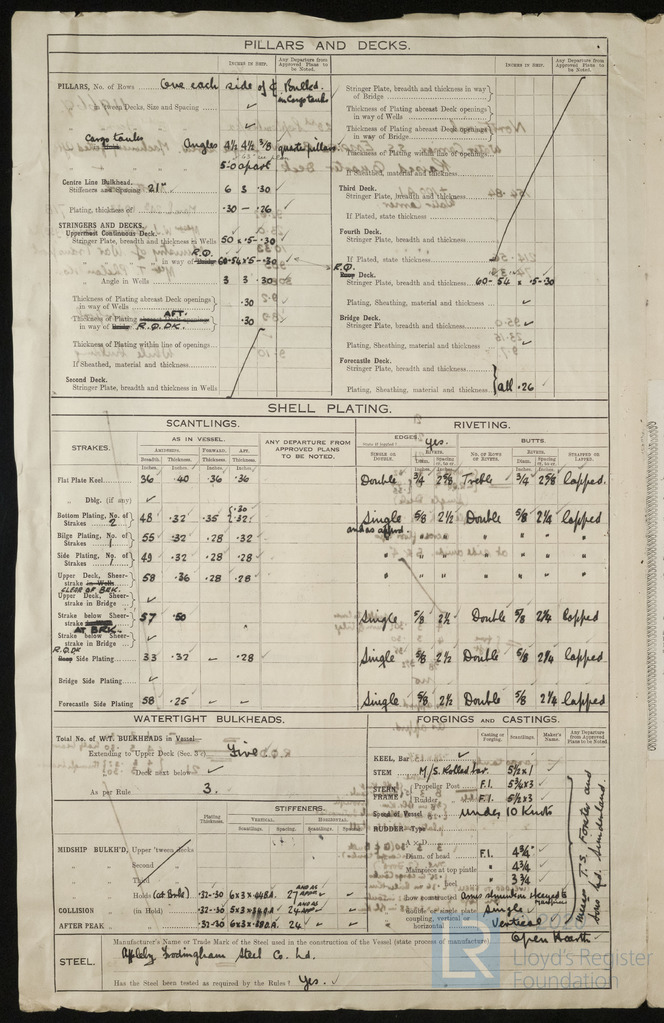 PILLARS AND DECKS.
INCHES IN SHIP.
Any Departure from Approved Plans to be Noted.
PILLARS, No. of Rows One each side of ₵ Bulkd. in Cargo tank
in 'tween Decks, Size and Spacing ✓
Cargo tanks Angles 4½ 4½ 5/8 quarter pillars
5-0 apart
Centre Line Bulkhead.
Stiffeners and Spacing 21" 6 3 .30
Plating, thickness of .30 - .26
STRINGERS AND DECKS.
Uppermost Continuous Deck.
Stringer Plate, breadth and thickness in Wells 50 × .5-.30
R.Q. 60-54×.5-.30
Angle in Wells 3 3 .30
Thickness of Plating abreast Deck openings in way of Wells .30
Thickness of Plating AFT. in way of R.Q.DK. .30
Thickness of Plating within line of openings
If Sheathed, material and thickness
Second Deck.
Stringer Plate, breadth and thickness in Wells
INCHES IN SHIP.
Any Departure from Approved Plans to be Noted.
Stringer Plate, breadth and thickness in way of Bridge
Thickness of Plating abreast Deck openings in way of Wells
Thickness of Plating abreast Deck openings in way of Bridge
Thickness of Plating within line of openings
If Sheathed, material and thickness
Third Deck.
Stringer Plate, breadth and thickness
If Plated, state thickness
Fourth Deck.
Stringer Plate, breadth and thickness
If Plated, state thickness
R.Q. Deck.
Stringer Plate, breadth and thickness 60-54 × .5-30
Plating, Sheathing, material and thickness ✓
Bridge Deck.
Stringer Plate, breadth and thickness
Plating, Sheathing, material and thickness ✓
Forecastle Deck.
Stringer Plate, breadth and thickness
Plating, Sheathing, material and thickness all .26
SHELL PLATING.
SCANTLINGS.
RIVETING.
STRAKES.
AS IN VESSEL.
ANY DEPARTURE FROM APPROVED PLANS TO BE NOTED.
EDGES. Yes.
BUTTS.
AMIDSHIPS. FORWARD. AFT.
Breadth. Thickness. Thickness. Thickness.
SINGLE OR DOUBLE. RIVETS. Diam. Spacing cr. to cr.
No. OF ROWS OF RIVETS. RIVETS. Diam. Spacing cr. to cr. STRAPPED OR LAPPED.
Inches. Inches. Inches. Inches.
Flat Plate Keel 36 .40 .36 .36 Double 3/4 2 5/8 Treble 3/4 2 5/8 lapped.
Dblg. (if any) ✓
Bottom Plating, No. of Strakes 2 48 .32 .35 .30 .32 Single 5/8 2½ Double 5/8 2¼ lapped
Bilge Plating, No. of Strakes 1 55 .32 .28 .32 " " " " " "
Side Plating, No. of Strakes 1 49 .32 .28 .28 " " " " " "
Upper Deck, Sheerstrake in Wells 58 .36 .28 .28 " " " " " "
CLEAR OF BRK.
Upper Deck, Sheerstrake in Bridge ✓
Strake below Sheerstrake 57 .50 Single 5/8 2½ Double 5/8 2¼ lapped
AT BRK.
Strake below Sheerstrake in Bridge ✓
R.Q.DK Side Plating 33 .32 - .28 Single 5/8 2½ Double 5/8 2¼ lapped.
Bridge Side Plating ✓
Forecastle Side Plating 58 .25 - - Single 5/8 2½ Double 5/8 2¼ lapped
WATERTIGHT BULKHEADS.
Total No. of W.T. BULKHEADS in Vessel
Extending to Upper Deck Five
Deck next below ✓
As per Rule 3.
STIFFENERS.
Plating Thickness.
VERTICAL. HORIZONTAL.
Scantlings. Spacing. Scantlings. Spacing.
MIDSHIP BULKH'D, Upper 'tween decks
Second
Third
Holds .32-.30 27
COLLISION (in Hold) .32-.30 24
AFTER PEAK .32-.30 24
FORGINGS AND CASTINGS.
Casting or Forging. Scantlings. Maker's Name. Any Departure from Approved Plans to be Noted.
KEEL, Bar ✓
STEM M/S. Rolled bar. 5½×1
STERN FRAME Propeller Post F.I. 5¾×3
Rudder F.I. 5½×3
Speed of Vessel under 10 Knots
RUDDER-Type
A × D
Diam. of head F.I. 4¾"
Mainpiece at top pintle 4¾
heel 3¾
How constructed
double or single plate Single
coupling, vertical or horizontal Vertical
Messrs T.S. Forster and Sons Ltd. Sunderland.
STEEL.
Manufacturer's Name or Trade Mark of the Steel used in the construction of the Vessel (state process of manufacture). Open Hearth
Appleby Frodingham Steel Co. Ltd.
Has the Steel been tested as required by the Rules? Yes.
LR
Lloyd's Register
Foundation